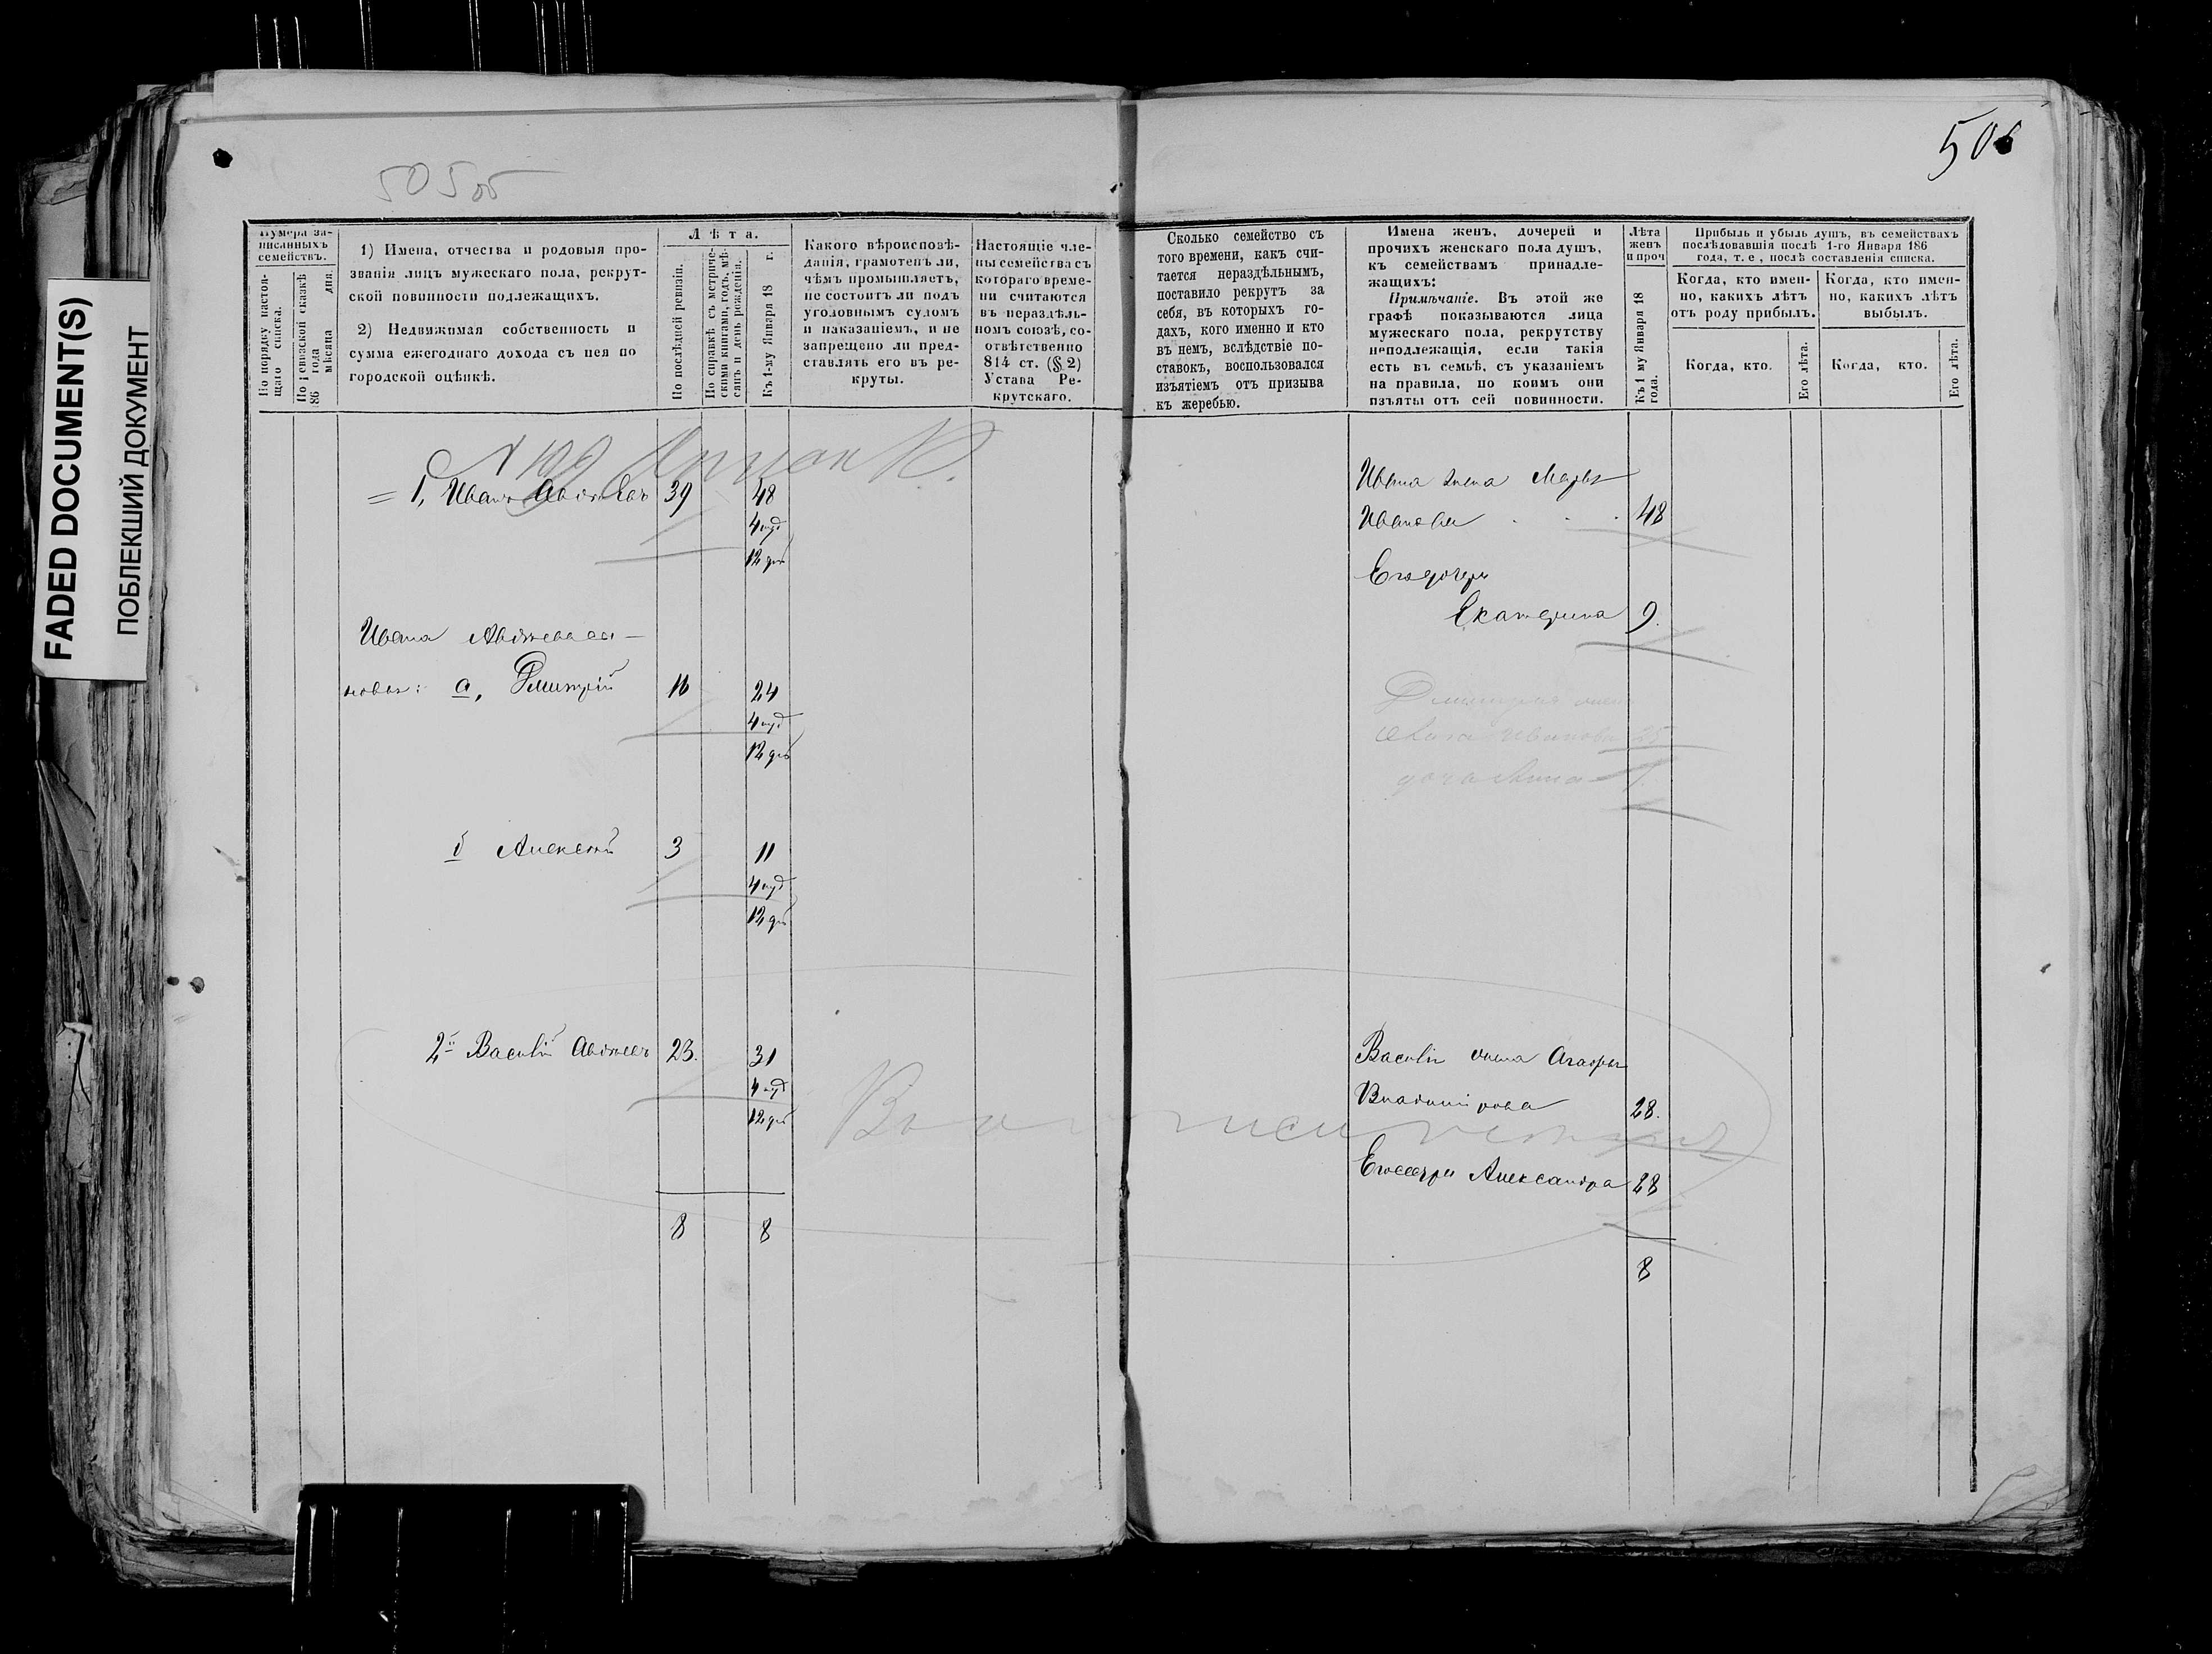 FADED DOCUMENT(S)
ПОБЛЕКШИЙ ДОКУМЕНТ
505 об
506
Нумера за-
писанныхъ
семействъ.
По порядку настоя-
щаго списка.
По ревизской сказкѣ
186 года
мѣсяца дня.
1) Имена, отчества и родовыя про-
званія лицъ мужескаго пола, рекрут-
ской повинности подлежащихъ.
2) Недвижимая собственность и
сумма ежегоднаго дохода съ нея по
городской оцѣнкѣ.
Лѣта.
По послѣдней ревизіи.
По справкѣ съ метриче-
скими книгами, годъ, мѣ-
сяцъ и день рожденія.
Къ 1-му Января 18 г.
Какого вѣроисповѣ-
данія, грамотенъ ли,
чѣмъ промышляетъ,
не состоитъ ли подъ
уголовнымъ судомъ
и наказаніемъ, и не
запрещено ли пред-
ставлять его въ ре-
круты.
Настоящіе чле-
ны семейства съ
котораго време-
ни считаются
въ нераздѣль-
номъ союзѣ, со-
отвѣтственно
814 ст. (§ 2)
Устава Ре-
крутскаго.
Сколько семейство съ
того времени, какъ счи-
тается нераздѣльнымъ,
поставило рекрутъ за
себя, въ которыхъ го-
дахъ, кого именно и кто
въ немъ, вслѣдствіе по-
ставокъ, воспользовался
изъятіемъ отъ призыва
къ жеребью.
Имена женъ, дочерей и
прочихъ женскаго пола душъ,
къ семействамъ принадле-
жащихъ:
Примѣчаніе. Въ этой же
графѣ показываются лица
мужескаго пола, рекрутству
неподлежащія, если такія
есть въ семьѣ, съ указаніемъ
на правила, по коимъ они
изъяты отъ сей повинности.
Лѣта
женъ
и проч
Къ 1 му Января 18
года.
Прибыль и убыль душъ, въ семействахъ
послѣдовавшія послѣ 1-го Января 186
года, т. е., послѣ составленія списка.
Когда, кто имен-
но, какихъ лѣтъ
отъ роду прибылъ.
Когда, кто имен-
но, какихъ лѣтъ
выбылъ.
Когда, кто.
Его лѣта.
Когда, кто.
Его лѣта.
1, Иванъ Авдѣевъ 39 48
12 дн
Ивана жена Марья
Иванова 48
Его дочери
Екатерина 9.
Ивана Авдѣева сы-
новья: а, Дмитрій 16 24
12 дн
Дмитрія жена
Ивановна 25
дочь Анна 1.
б Алексѣй 3 11
12 дн
2й Василій Авдѣевъ 23. 31
12 дн
Василія жена Агафья
Владимірова 28.
Его сестра Александра 28
8 8
8